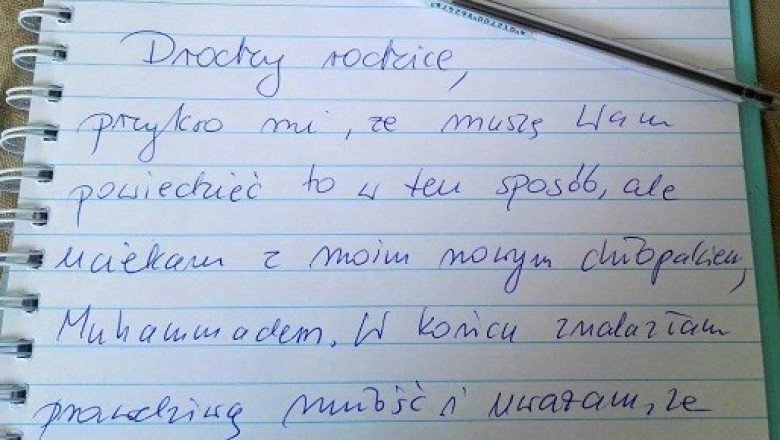 Drodzy rodzice,
przykro mi, że muszę Wam
powiedzieć to w ten sposób, ale
uciekam z moim nowym chłopakiem,
Muhammadem. W końcu znalazłam
prawdziwą miłość i uważam, że